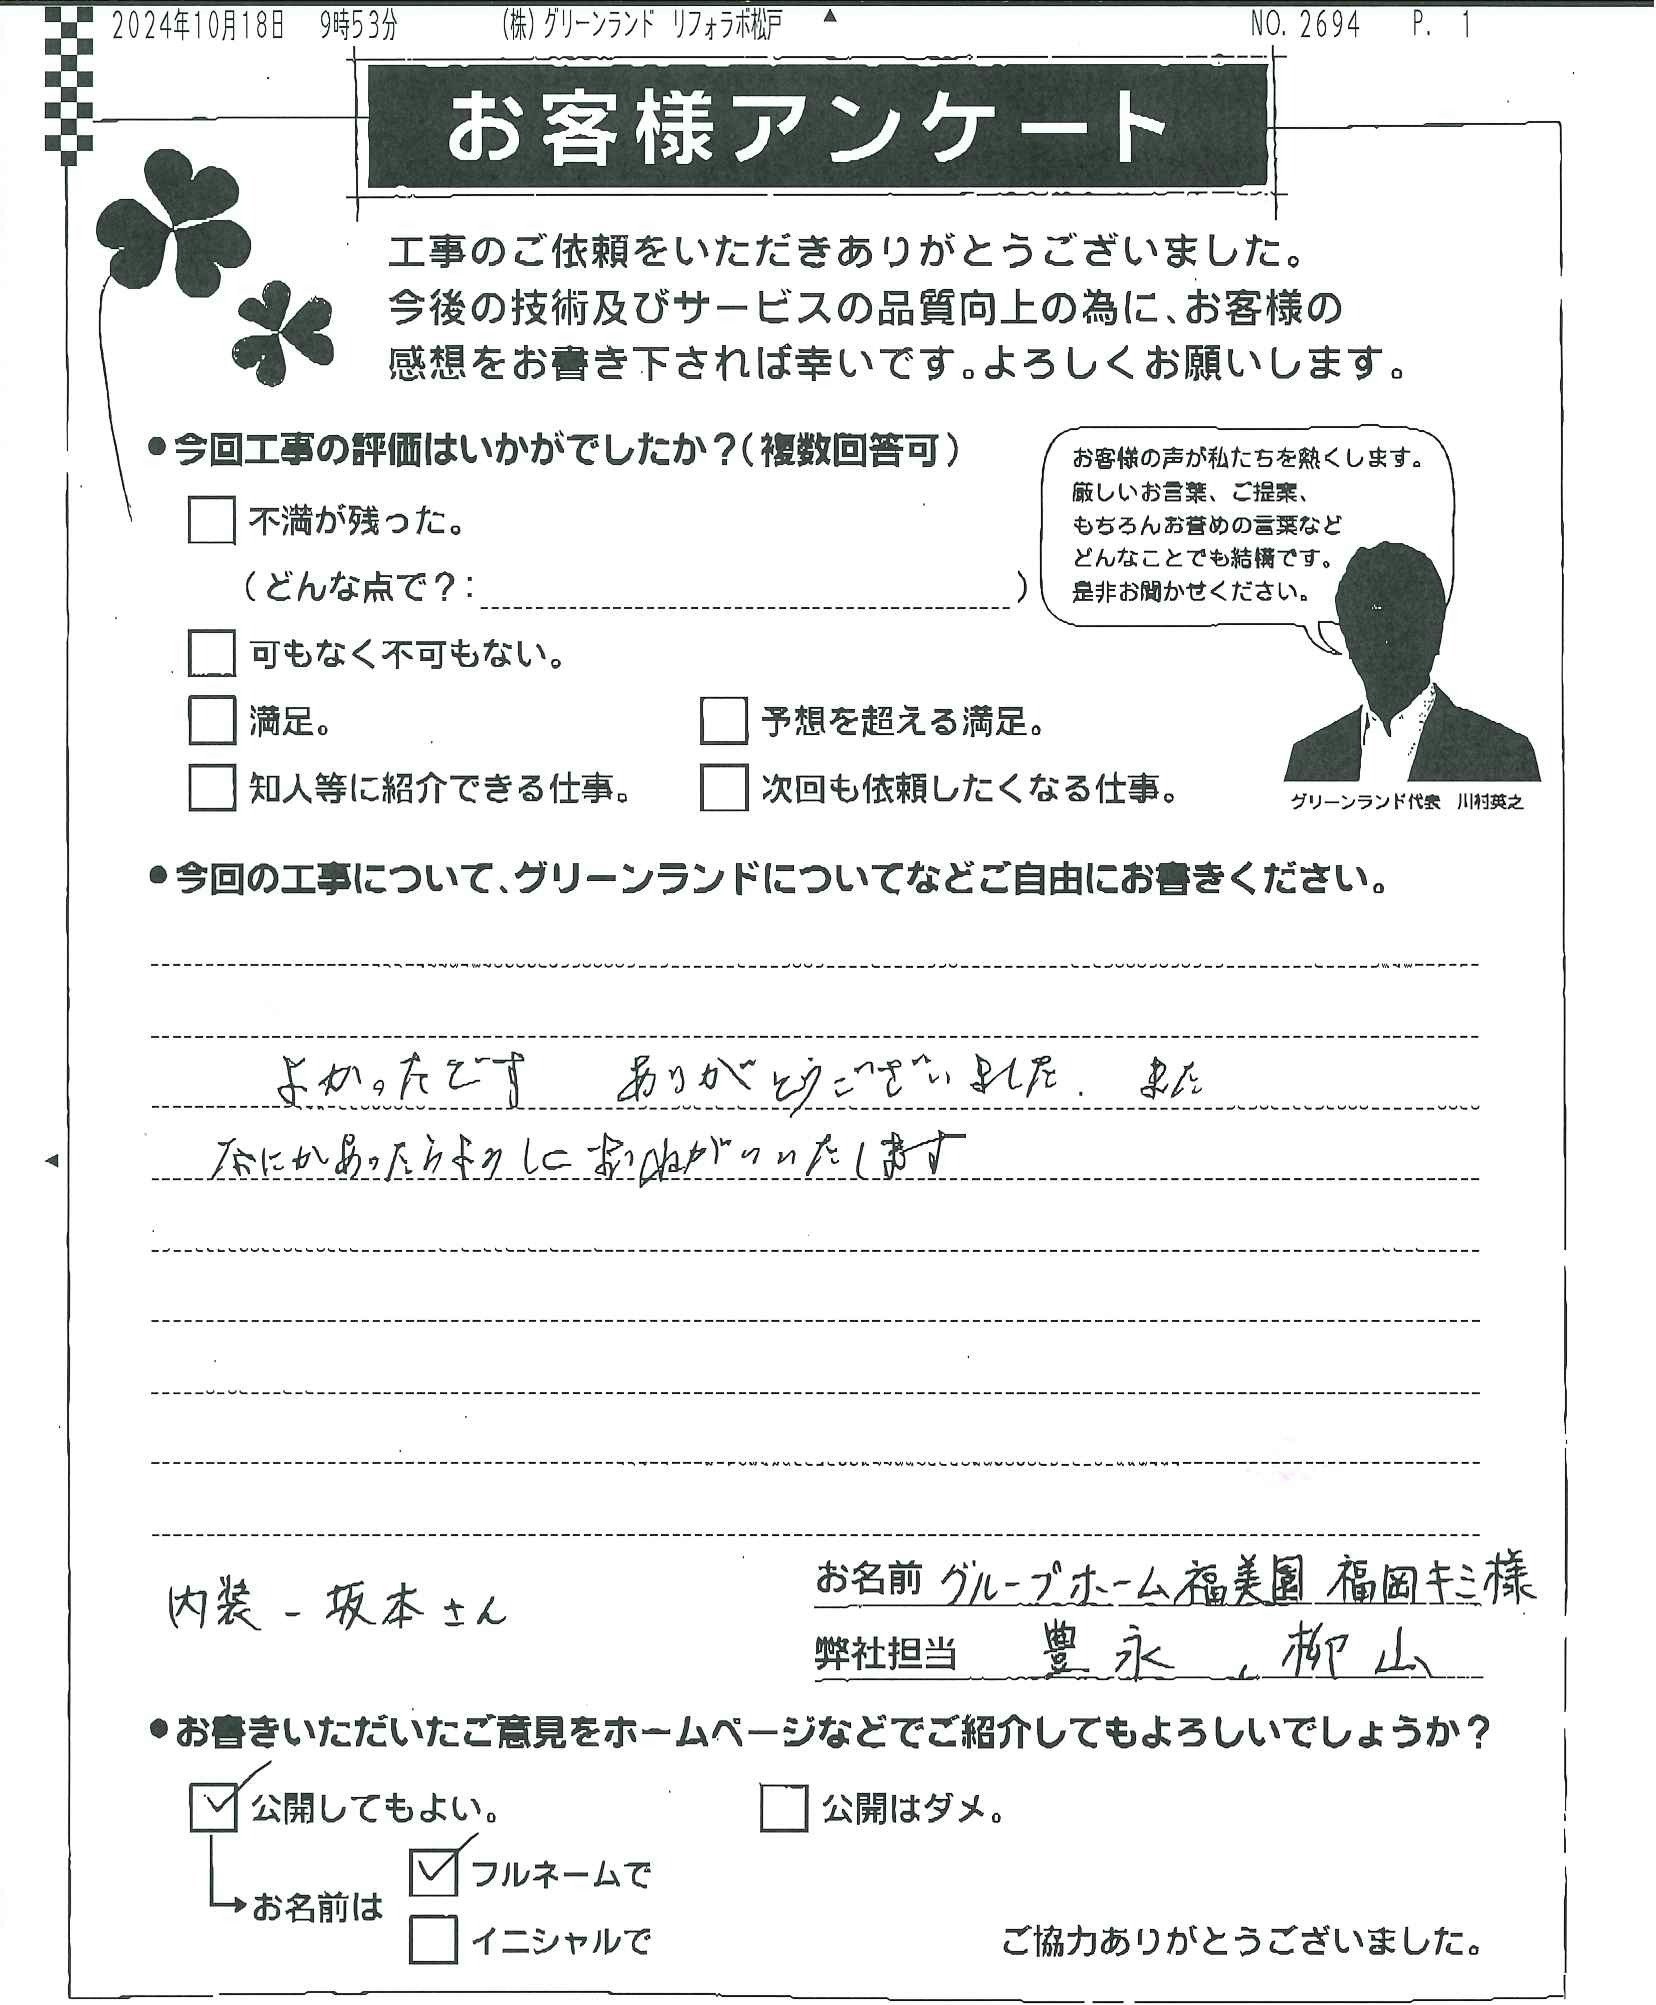 2024年10月18日 9時53分 (株)グリーンランド リフォラボ松戸 NO. 2694 P. 1
お客様アンケート
工事のご依頼をいただきありがとうございました。
今後の技術及びサービスの品質向上の為に、お客様の
感想をお書き下されば幸いです。よろしくお願いします。
●今回工事の評価はいかがでしたか?(複数回答可)
お客様の声が私たちを熱くします。
厳しいお言葉、ご提案、
もちろんお誉めの言葉など
どんなことでも結構です。
是非お聞かせください。
不満が残った。
(どんな点で?: )
可もなく不可もない。
満足。 予想を超える満足。
知人等に紹介できる仕事。 次回も依頼したくなる仕事。
グリーンランド代表 川村英之
●今回の工事について、グリーンランドについてなどご自由にお書きください。
よかったです ありがとうございました. また
なにかあったらよろしくおねがいいたします
お名前 グループホーム福美園 福岡キミ様
内装-坂本さん
弊社担当 豊永、柳山
●お書きいただいたご意見をホームページなどでご紹介してもよろしいでしょうか?
公開してもよい。 公開はダメ。
フルネームで
お名前は
イニシャルで
ご協力ありがとうございました。